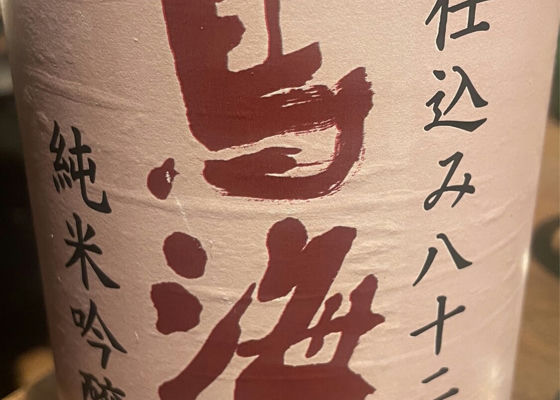 仕込み八十二
鳥海
純米吟醸